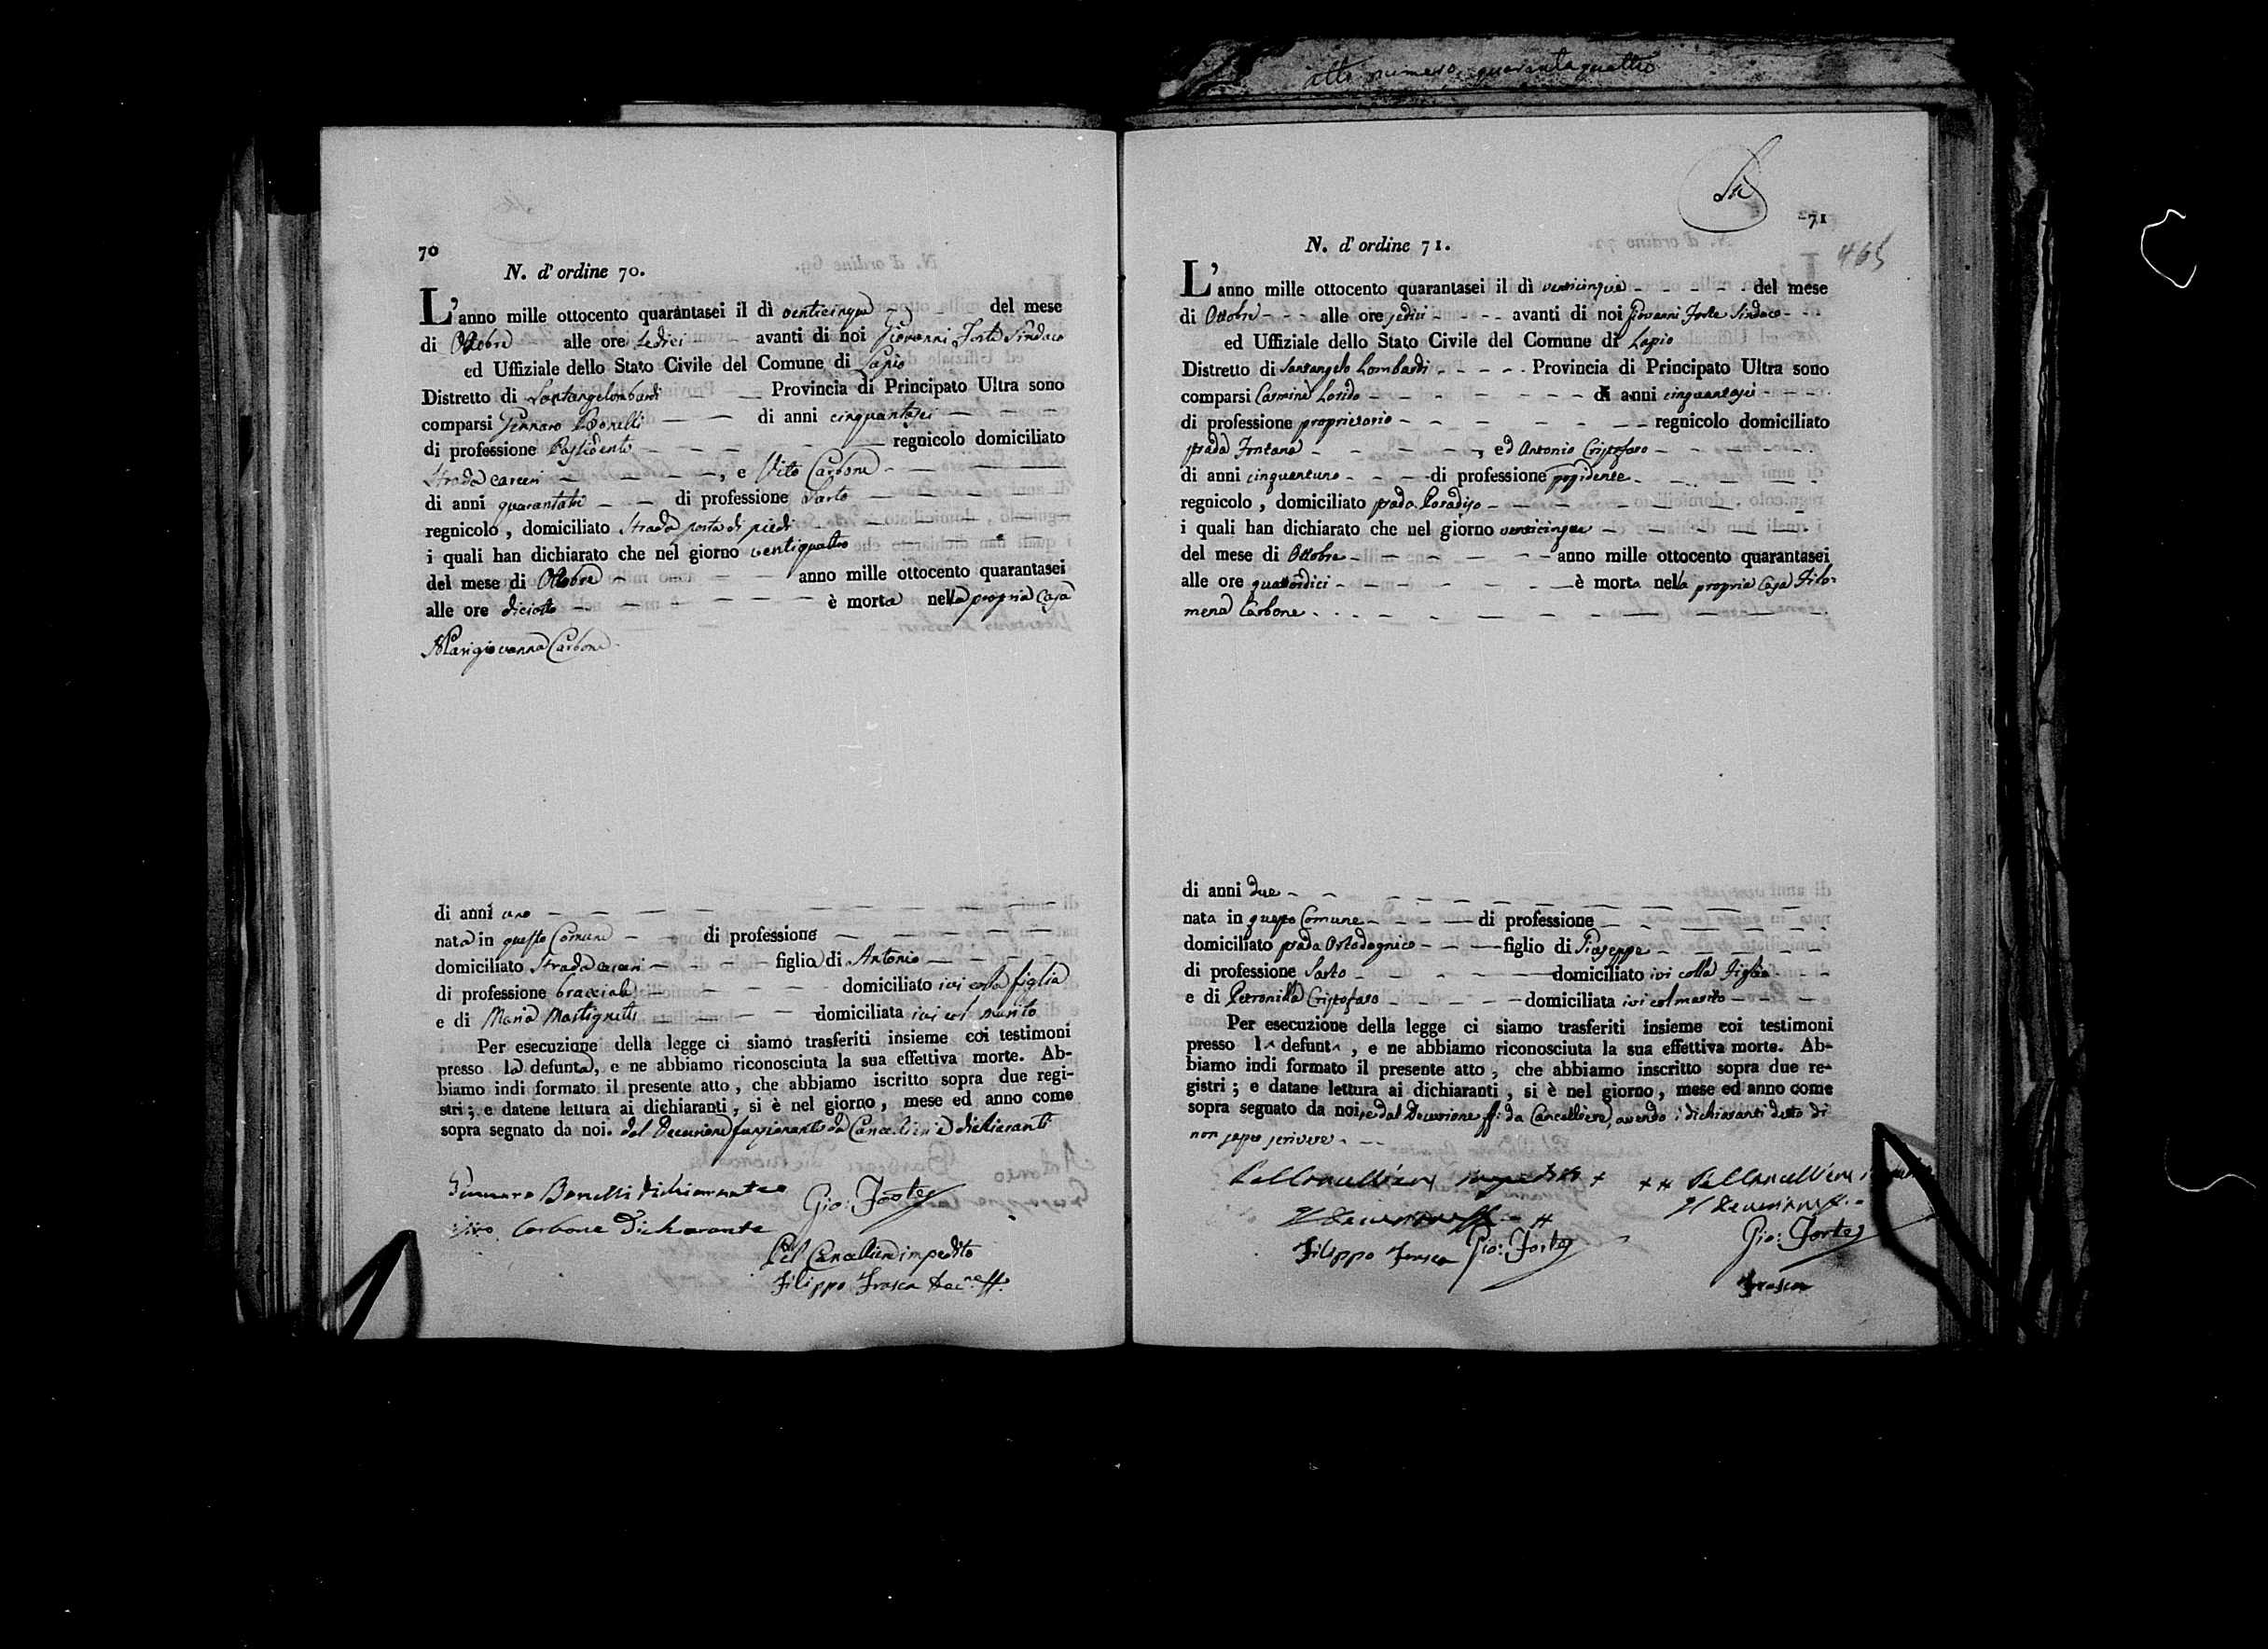 atto numero quarantaquattro
70
N. d' ordine 70.
L'anno mille ottocento quarantasei il dì venticinque del mese
di Ottobre alle ore sedici avanti di noi Giovanni Forte Sindaco
ed Uffiziale dello Stato Civile del Comune di Lapio
Distretto di Santangelombardi Provincia di Principato Ultra sono
comparsi Gennaro Bonelli di anni cinquantasei
di professione Possidente regnicolo domiciliato
Strada carceri, e Vito Carbone
di anni quarantatre di professione Sarto
regnicolo, domiciliato Strada porta di piedi
i quali han dichiarato che nel giorno ventiquattro
del mese di Ottobre anno mille ottocento quarantasei
alle ore diciotto è morta nella propria casa
Marigiovanna Carbone
di anni uno
nata in questo Comune di professione
domiciliato Strada carceri figlia di Antonio
di professione bracciale domiciliato ivi colla figlia
e di Maria Mastignetti domiciliata ivi col marito
Per esecuzione della legge ci siamo trasferiti insieme coi testimoni
presso la defunta, e ne abbiamo riconosciuta la sua effettiva morte. Ab-
biamo indi formato il presente atto, che abbiamo iscritto sopra due regi-
stri; e datene lettura ai dichiaranti, si è nel giorno, mese ed anno come
sopra segnato da noi. dal Decurione funzionante da Cancelliere e dichiaranti
Gennaro Bonelli dichiarante
Vito Carbone Dicharante
Gio: Forte
Pel Cancelliere impedito
Filippo Frasca Dec.ne ff.
71
465
N. d' ordine 71.
L'anno mille ottocento quarantasei il dì venticinque del mese
di Ottobre alle ore sedici avanti di noi Giovanni Forte Sindaco
ed Uffiziale dello Stato Civile del Comune di Lapio
Distretto di Santangelo Lombardi Provincia di Principato Ultra sono
comparsi Carmine Lorido di anni cinquantasei
di professione proprietario regnicolo domiciliato
strada Fontana, ed Antonio Cristofaro
di anni cinquantuno di professione possidente
regnicolo, domiciliato strada Paradiso
i quali han dichiarato che nel giorno venticinque
del mese di Ottobre anno mille ottocento quarantasei
alle ore quattordici è morta nella propria casa Filo-
mena Carbone
di anni due
nata in questo Comune di professione
domiciliato strada figlio di Giuseppe
di professione Sarto domiciliato ivi colla figlia
e di Petronilla Cristofaro domiciliata ivi col marito
Per esecuzione della legge ci siamo trasferiti insieme coi testimoni
presso la defunta, e ne abbiamo riconosciuta la sua effettiva morte. Ab-
biamo indi formato il presente atto, che abbiamo inscritto sopra due re-
gistri; e datane lettura ai dichiaranti, si è nel giorno, mese ed anno come
sopra segnato da noi, e dal Decurione ff. da Cancelliere, avendo i dichiaranti detto di
non saper scrivere
Pel Cancelliere impedito
Il Decurione ff.
Filippo Frasca Gio: Forte
Pel Cancelliere
Il Decurione ff.
Gio: Forte
Frasca